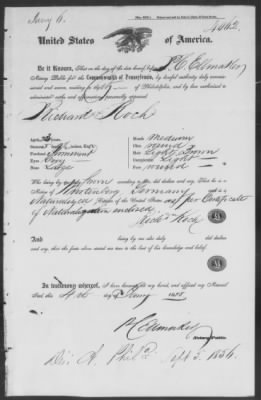 Jany 6.
4062
United States of America.
Be it Known, That on the day of the date hereof before P. C. Ellmaker
Notary Public for the Commonwealth of Pennsylvania, by lawful authority duly commissioned
and sworn, residing in the City of Philadelphia, and by law authorized to
administer oaths and affirmations personally appeared
Richard Koch
Age
Stature
Forehead Prominent
Eyes Grey
Nose Large
Mouth Medium
Chin Round
Hair Light Brown
Complexion Light
Face Round
Who being by me Sworn according to law did declare and say, That he is a
Native of Wurtemberg Germany and
Naturalized Citizen of the United States as per Certificate
of Naturalization enclosed
Richd Koch
And
who being by me also duly did declare
and say, that the facts above stated are true to the best of his knowledge and belief
In testimony whereof, I have hereunto set my hand, and affixed my Notarial
Seal, this 4th day of Jany 1858
P C Ellmaker
Notary Public.
Phila Sept 5. 1856.